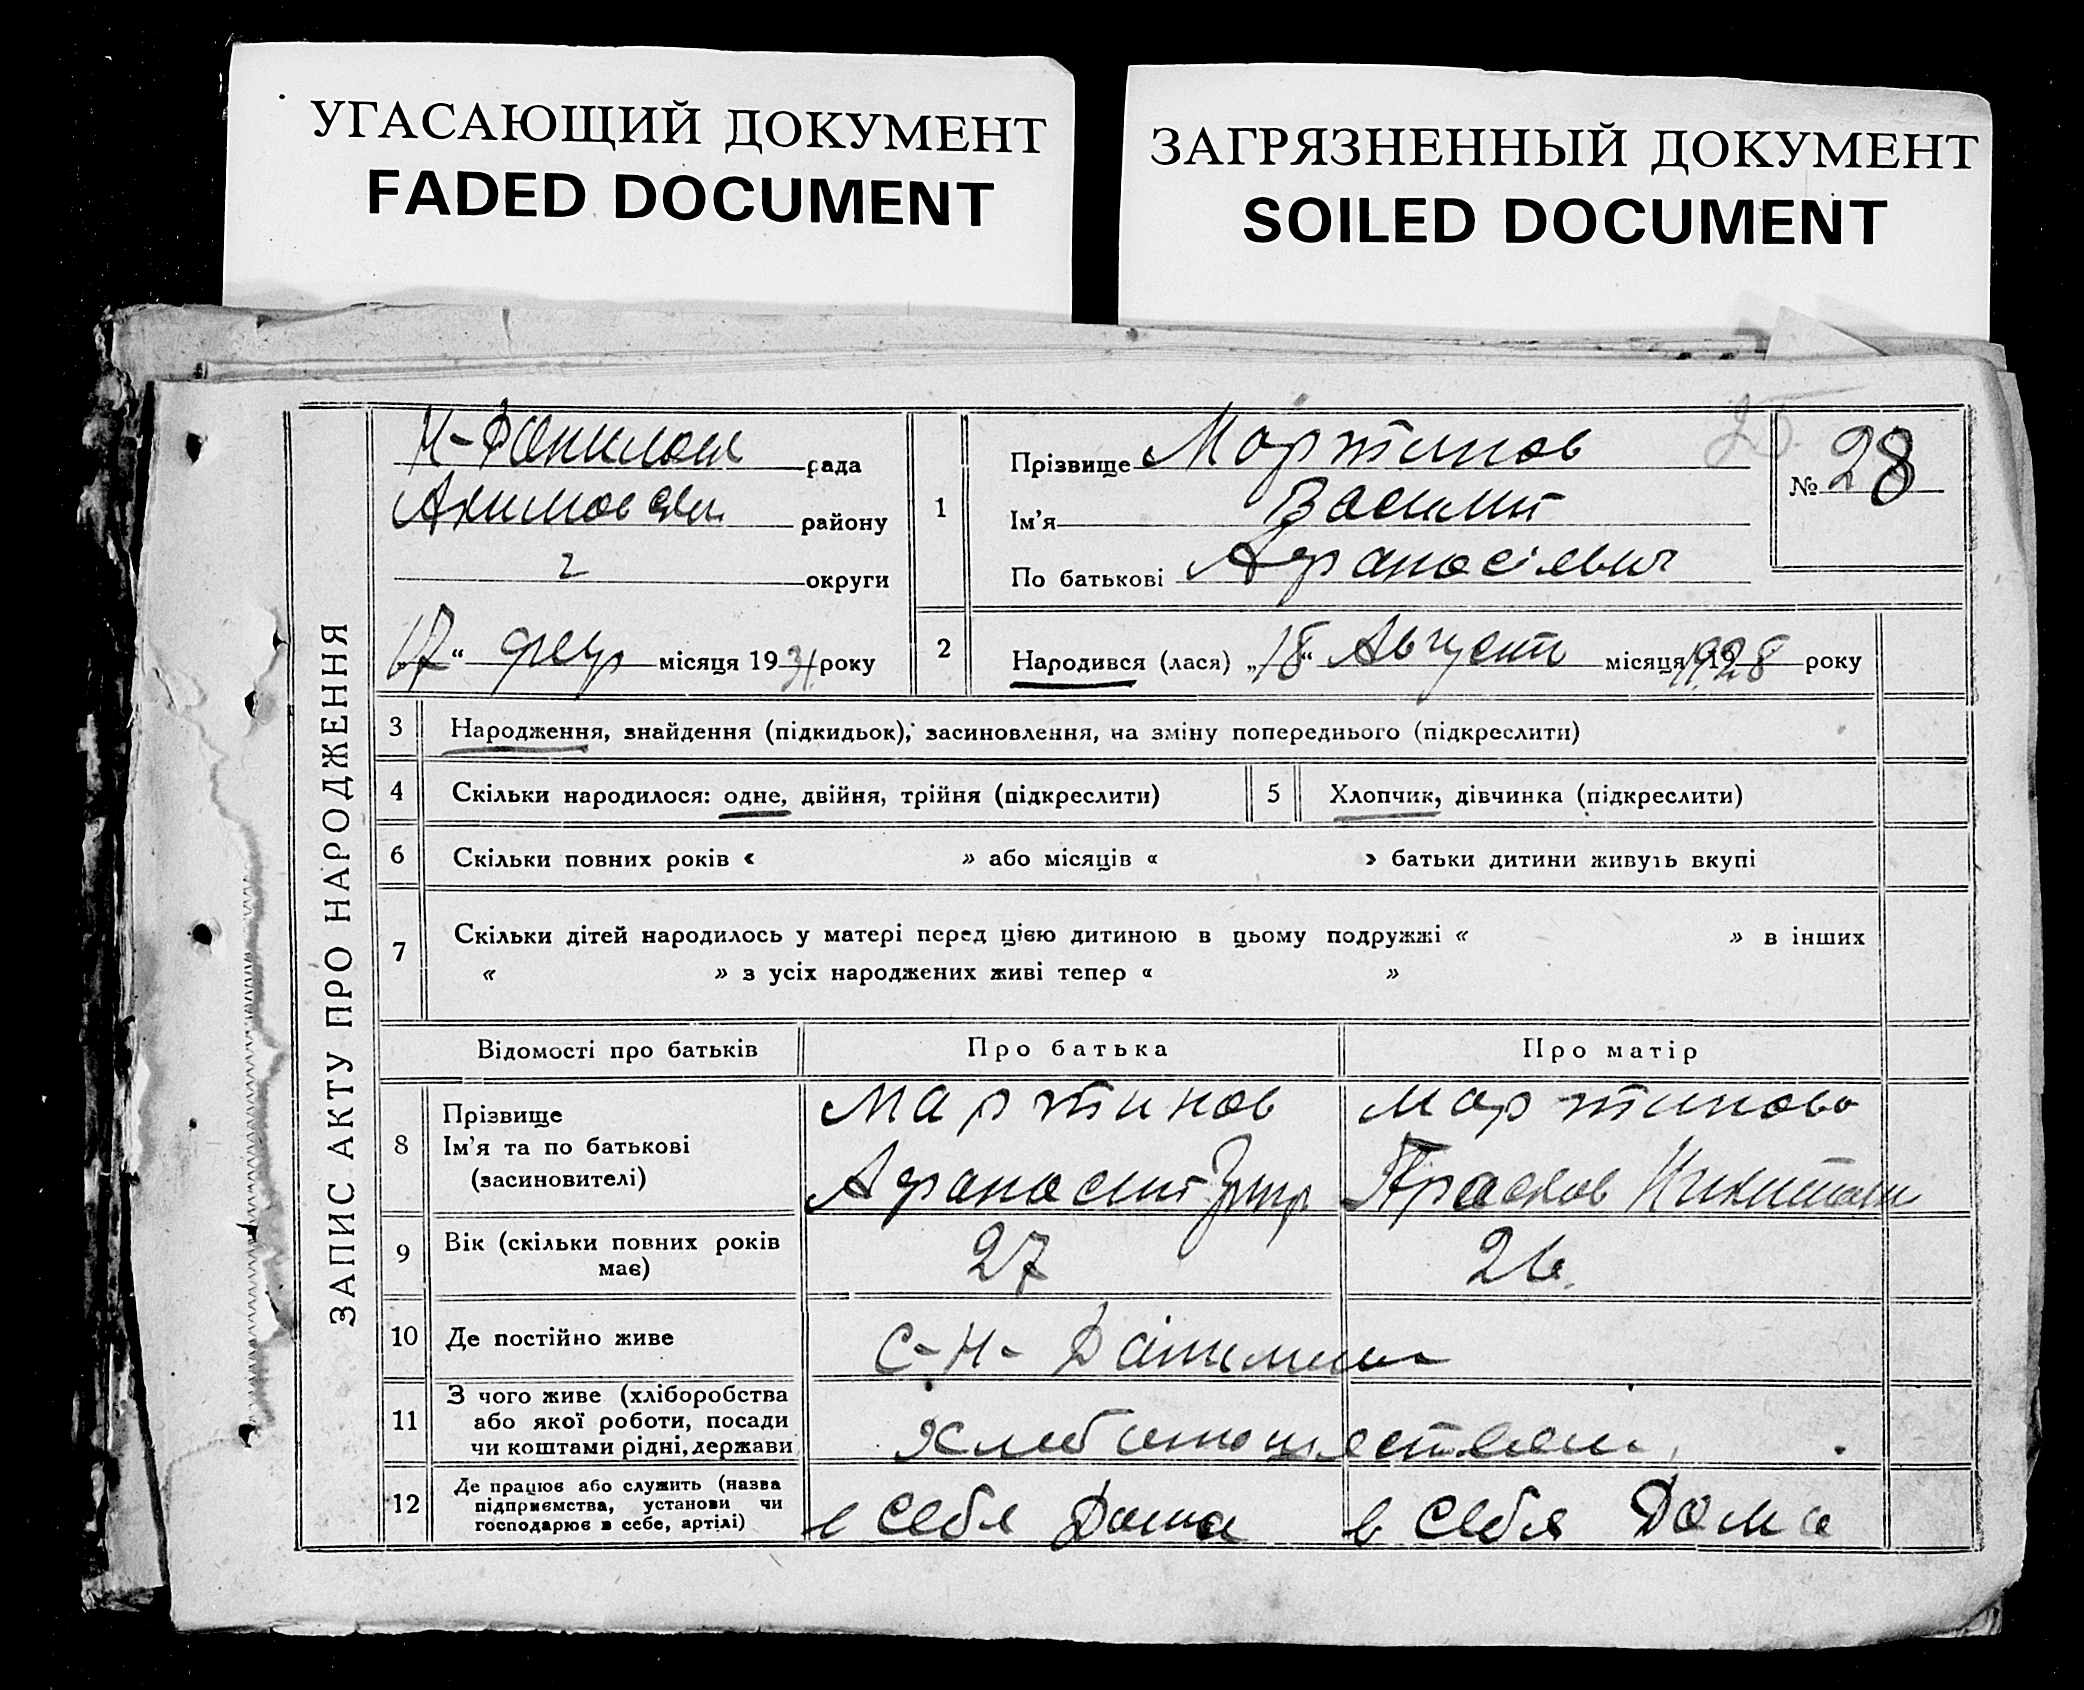 УГАСАЮЩИЙ ДОКУМЕНТ
FADED DOCUMENT
ЗАГРЯЗНЕННЫЙ ДОКУМЕНТ
SOILED DOCUMENT
ЗАПИС АКТУ ПРО НАРОДЖЕННЯ
рада
району
округи
17 “ февр місяця 1931 року
25
№ 28
1
Прізвище Мартинов
Ім'я Василит
По батькові Афанасієвич
2 Народився (лася) „18“ Август місяця 1928 року
3 Народження, знайдення (підкидьок), засиновлення, на зміну попереднього (підкреслити)
4 Скільки народилося: одне, двійня, трійня (підкреслити) 5 Хлопчик, дівчинка (підкреслити)
6 Скільки повних років « » або місяців « » батьки дитини живуть вкупі
7 Скільки дітей народилось у матері перед цією дитиною в цьому подружжі « » в інших
« » з усіх народжених живі тепер « »
Відомості про батьків Про батька Про матір
8 Прізвище Мартинов Мартинова
Ім'я та по батькові
(засиновителі)
9 Вік (скільки повних років має) 27 26
10 Де постійно живе с-Н-
11 З чого живе (хліборобства
або якої роботи, посади
чи коштами рідні, держави
12 Де працює або служить (назва
підприємства, установи чи
господарює в себе, артілі)
в себя Дома в себя Дома